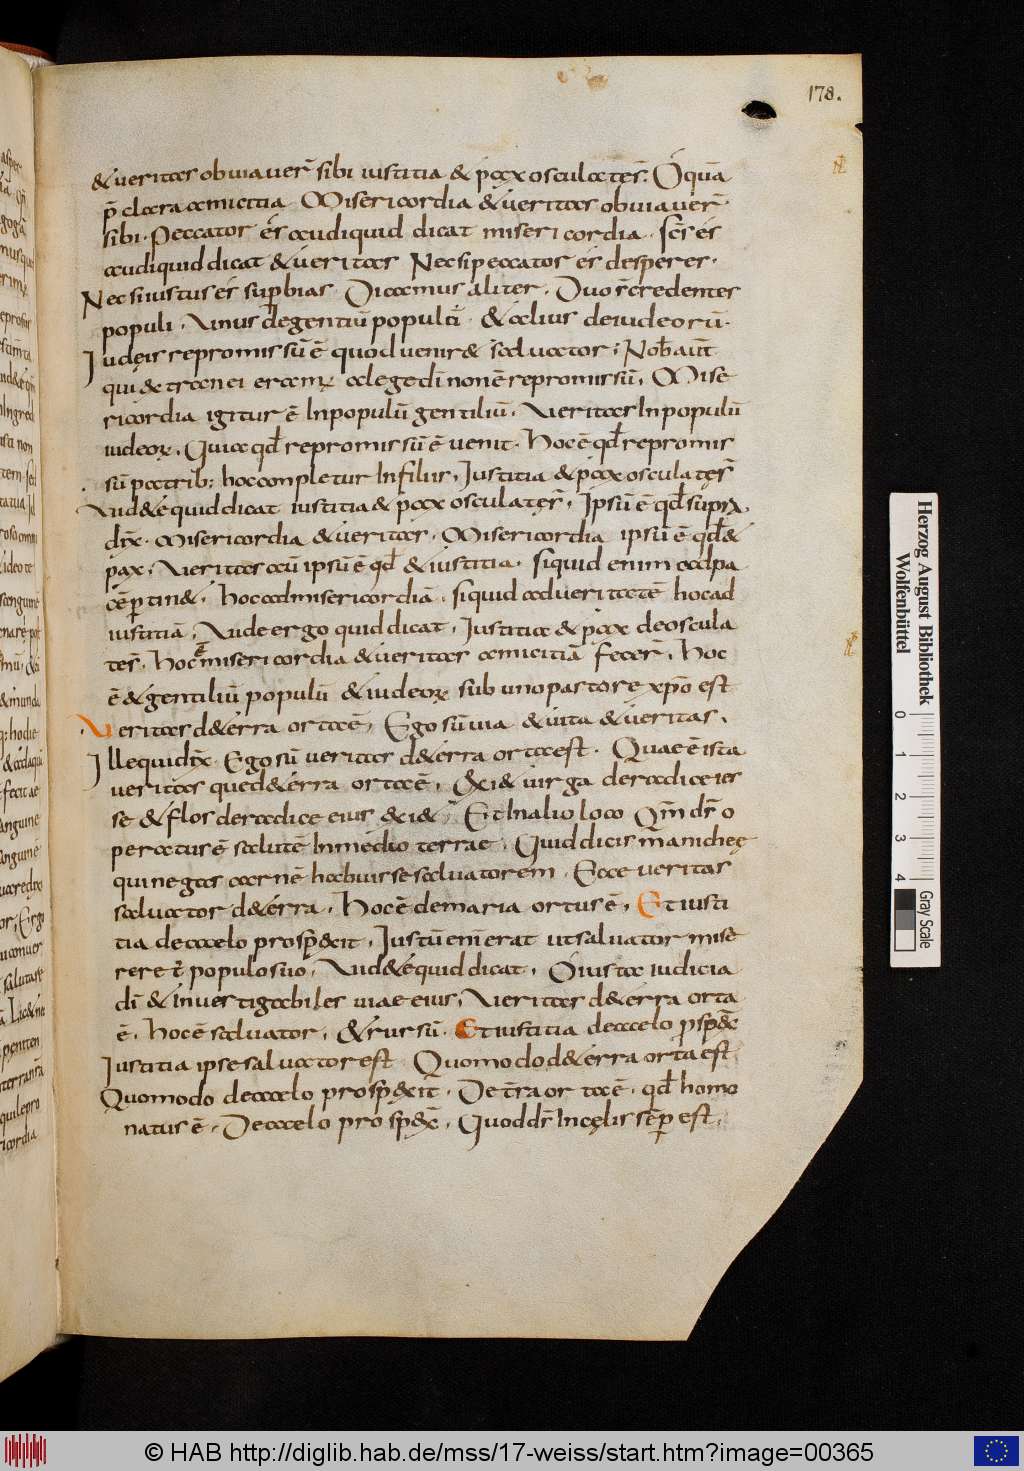 178.
& ueritas obuiauer̄ sibi iustitia & pax osculatę s̄. O quā
p̄clara amicitia Misericordia & ueritas obuiauer̄
sibi. Peccator és audi quid dicat misericordia. sc̄s és
audi quid dicat & ueritas Nec si peccator és desperes.
Nec si iustus és supbias. Dicamus aliter. Duo s̄ credentes
populi. Unus de gentiū populi. & alius de iudeorū.
Iudęis repromissū ē quod uenir& saluator; Nob̄ aūt
qui &tranei eramꝰ a lege dī non ē repromissū. Mise
ricordia igitur ē In populū gentiliū. Ueritas In populū
iudeoꝝ. Quia qd̄ repromissū ē uenit. Hoc ē qd̄ repromis
sū patrib; hoc completur In filiis. Iustitia & pax osculatę s̄
Uid&é quid dicat iustitia & pax osculatę s̄. Ipsū ē qd̄ supra
dix̄. Misericordia & ueritas. Misericordia ipsū ē qd̄ &
pax. Ueritas aū ipsū ē qd̄ & iustitia. siquid enim ad pa
cē ptin&. hoc ad misericordiā. siquid ad ueritatē hoc ad
iustitiā. Uide ergo quid dicat. Iustitia & pax deoscula
tę s̄. hoc ē misericordia & ueritas amicitiā fecer̄. hoc
ē & gentiliū populū & iudeoꝝ sub uno pastore xp̄o est
Ueritas d&érra orta ē. Ego sū uia & uita & ueritas.
Ille qui dix̄. Ego sū ueritas d&érra orta est. Quae ē ista
ueritas que d&érra orta ē. &i& uirga de radice ies
se & flos de radice eius &i&. Et In alio loco Qm̄ ds̄ o
peratus ē salutē In medio terrae. Quid dicis manichęę
qui negas carnē habuisse saluatorem. Ecce ueritas
saluator d&érra. Hoc ē de maria ortus ē. Et iusti
tia de caelo prosp&it. Iustū eni erat ut saluator mise
reret̄ populo suo. Uid&é quid dicat. O iusta iudicia
dī & inuestigabiles uiae eius. Ueritas d&érra orta
ē. Hoc ē saluator. & rursū. Et iustitia de caelo psp&̄
Iustitia ipse saluator est. Quomodo d&érra orta est.
Quomodo de caelo prosp&it. De tr̄a orta ē. qd̄ homo
natus ē. De caelo prosp&̄. Quod ds̄ In cęlis sēp est.
Herzog August Bibliothek
Wolfenbüttel
0 1 2 3 4
Gray Scale
© HAB http://diglib.hab.de/mss/17-weiss/start.htm?image=00365